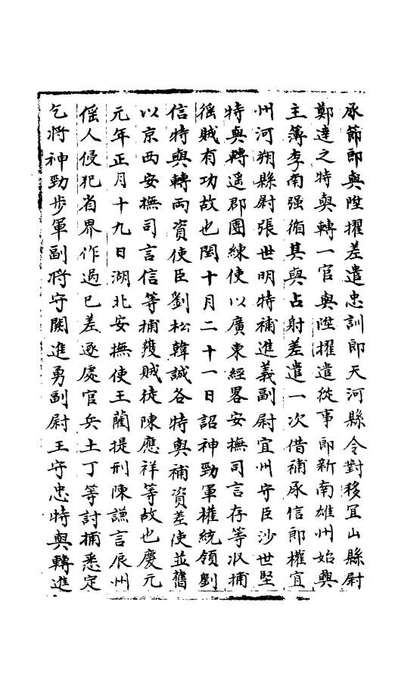 承節郎與陞擢差遣忠訓郎天河縣令對移宜山縣尉
鄭達之特與轉一官與陞擢遣從事郎新南雄州始興
主簿李南强循其與占射差遣一次借補承信郎權宜
州河朔縣尉張世明特補進義副尉宜州守臣沙世堅
特與轉遥郡團練使以廣東經略安撫司言存等收捕
猺賊有功故也閏十月二十一日詔神勁軍權統領劉
信特與轉兩資使臣劉松韓誠各特與補資差使並舊
以京西安撫司言信等捕獲賊徒陳應祥等故也慶元
元年正月十九日湖北安撫使王藺提刑陳謙言辰州
傜人侵犯省界作過已差逐處官兵土丁等討捕悉定
乞將神勁步軍副將守闕進勇副尉王守忠特與轉進